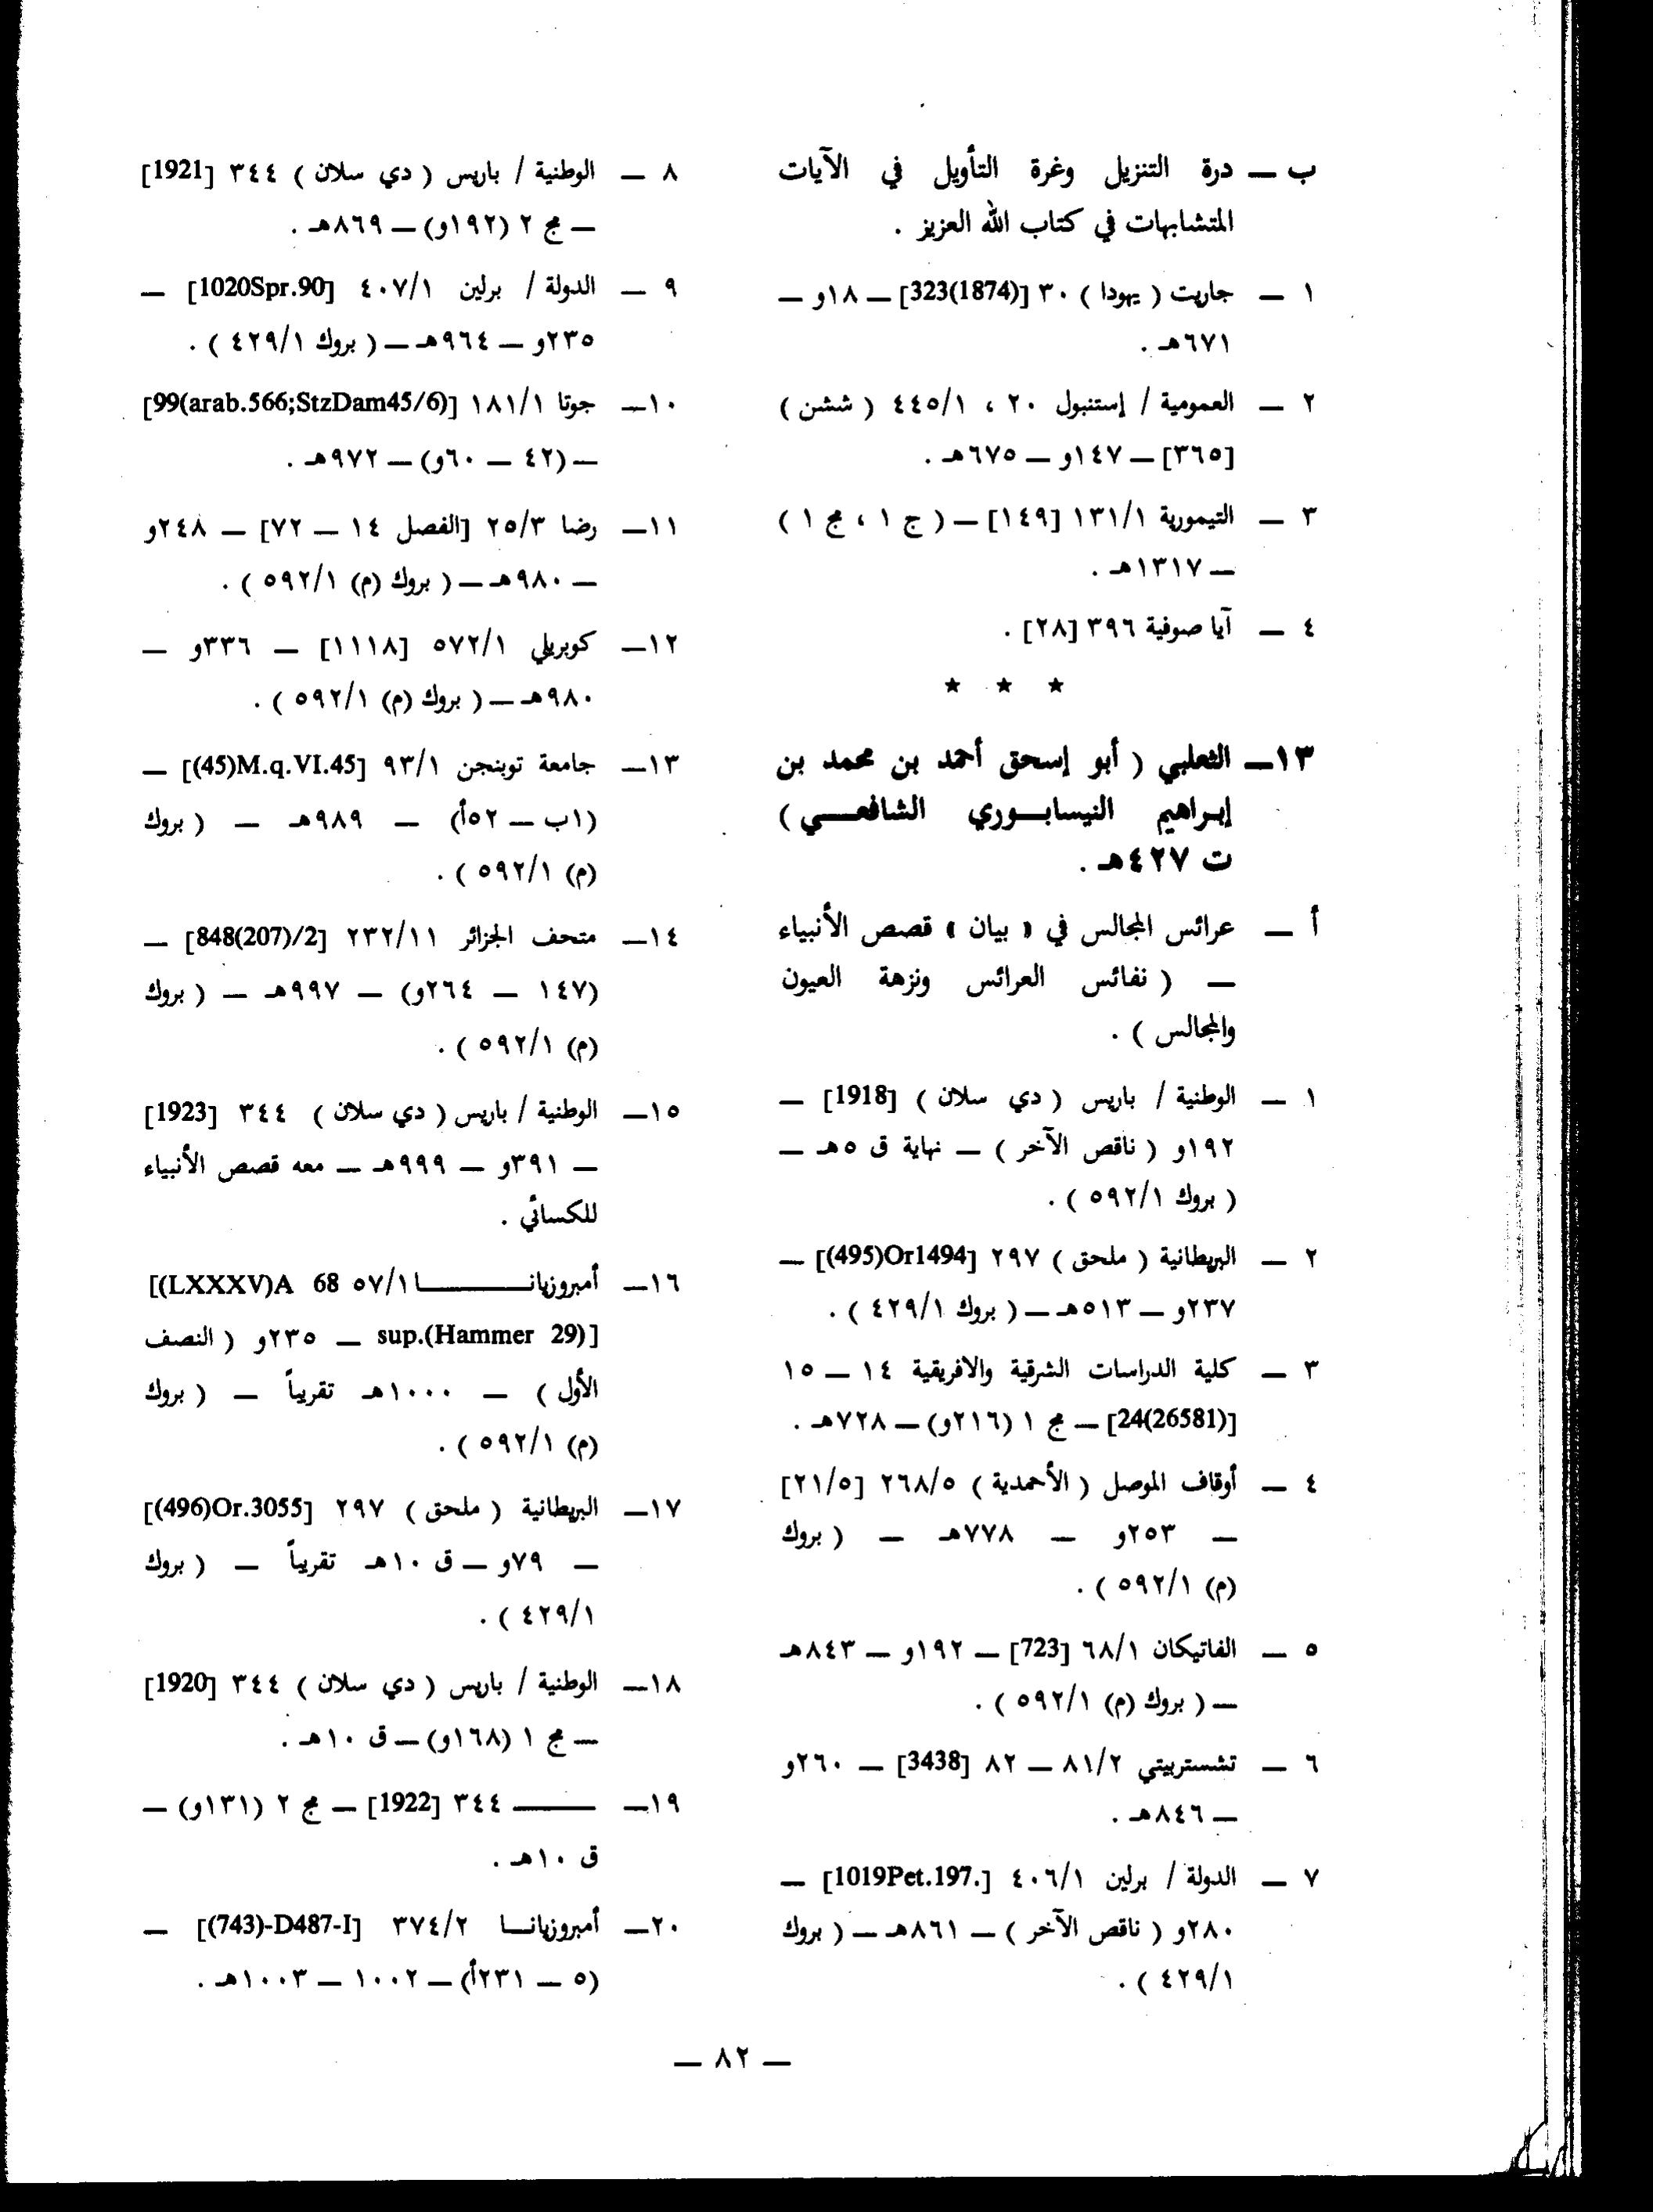 ب — درة التنزيل وغرة التأويل في الآيات
المتشابهات في كتاب الله العزيز .
١ — جاريت ( يهودا ) ٣٠ [323(1874)] — ١٨و —
٦٧١هـ .
٢ — العمومية / إستنبول ٢٠ ، ٤٤٥/١ ( ششن )
[٣٦٥] — ١٤٧و — ٦٧٥هـ .
٣ — التيمورية ١٣١/١ [١٤٩] — ( ج ١ ، مج ١ )
— ١٣١٧هـ .
٤ — آيا صوفية ٣٩٦ [٢٨] .
★ ★ ★
١٣— الثعلبي ( أبو إسحق أحمد بن محمد بن
إبـراهيم النيسابـــوري الشافعـــي )
ت ٤٢٧هـ .
أ — عرائس المجالس في « بيان » قصص الأنبياء
— ( نفائس العرائس ونزهة العيون
والمجالس ) .
١ — الوطنية / باريس ( دي سلان ) [1918] —
١٩٢و ( ناقص الآخر ) — نهاية ق ٥هـ —
( بروك ٥٩٢/١ ) .
٢ — البريطانية ( ملحق ) ٢٩٧ [(495)Or1494] —
٢٣٧و — ٥١٣هـ — ( بروك ٤٢٩/١ ) .
٣ — كلية الدراسات الشرقية والافريقية ١٤ — ١٥
[24(26581)] — مج ١ (٢١٦و) — ٧٢٨هـ .
٤ — أوقاف الموصل ( الأحمدية ) ٢٦٨/٥ [٢١/٥]
— ٢٥٣و — ٧٧٨هـ — ( بروك
(م) ٥٩٢/١ ) .
٥ — الفاتيكان ٦٨/١ [723] — ١٩٢و — ٨٤٣هـ
— ( بروك (م) ٥٩٢/١ ) .
٦ — تشستربيتي ٨١/٢ — ٨٢ [3438] — ٢٦٠و
— ٨٤٦هـ .
٧ — الدولة / برلين ٤٠٦/١ [1019Pet.197.] —
٢٨٠و ( ناقص الآخر ) — ٨٦١هـ — ( بروك
٤٢٩/١ ) .
٨ — الوطنية / باريس ( دي سلان ) ٣٤٤ [1921]
— مج ٢ (١٩٢و) — ٨٦٩هـ .
٩ — الدولة / برلين ٤٠٧/١ [1020Spr.90] —
٢٣٥و — ٩٦٤هـ — ( بروك ٤٢٩/١ ) .
١٠— جوتا ١٨١/١ [99(arab.566;StzDam45/6)]
— (٤٢ — ٦٠و) — ٩٧٢هـ .
١١— رضا ٢٥/٣ [الفصل ١٤ — ٧٢] — ٢٤٨و
— ٩٨٠هـ — ( بروك (م) ٥٩٢/١ ) .
١٢— كوبريلي ٥٧٢/١ [١١١٨] — ٣٣٦و —
٩٨٠هـ — ( بروك (م) ٥٩٢/١ ) .
١٣— جامعة توبنجن ٩٣/١ [(45)M.q.VI.45] —
(١ب — ٥٢أ) — ٩٨٩هـ — ( بروك
(م) ٥٩٢/١ ) .
١٤— متحف الجزائر ٢٣٢/١١ [848(207)/2] —
(١٤٧ — ٢٦٤و) — ٩٩٧هـ — ( بروك
(م) ٥٩٢/١ ) .
١٥— الوطنية / باريس ( دي سلان ) ٣٤٤ [1923]
— ٣٩١و — ٩٩٩هـ — معه قصص الأنبياء
للكسائي .
١٦— أمبروزيانـــــا ٥٧/١ [(LXXXV)A 68
sup.(Hammer 29)] — ٢٣٥و ( النصف
الأول ) — ١٠٠٠هـ تقريباً — ( بروك
(م) ٥٩٢/١ ) .
١٧— البريطانية ( ملحق ) ٢٩٧ [(496)Or.3055]
— ٧٩و — ق ١٠هـ تقريباً — ( بروك
٤٢٩/١ ) .
١٨— الوطنية / باريس ( دي سلان ) ٣٤٤ [1920]
— مج ١ (١٦٨و) — ق ١٠هـ .
١٩— ——— ٣٤٤ [1922] — مج ٢ (١٣١و) —
ق ١٠هـ .
٢٠— أمبروزيانـــا ٣٧٤/٢ [(743)-D487-I] —
(٥ — ٢٣١أ) — ١٠٠٢ — ١٠٠٣هـ .
— ٨٢ —